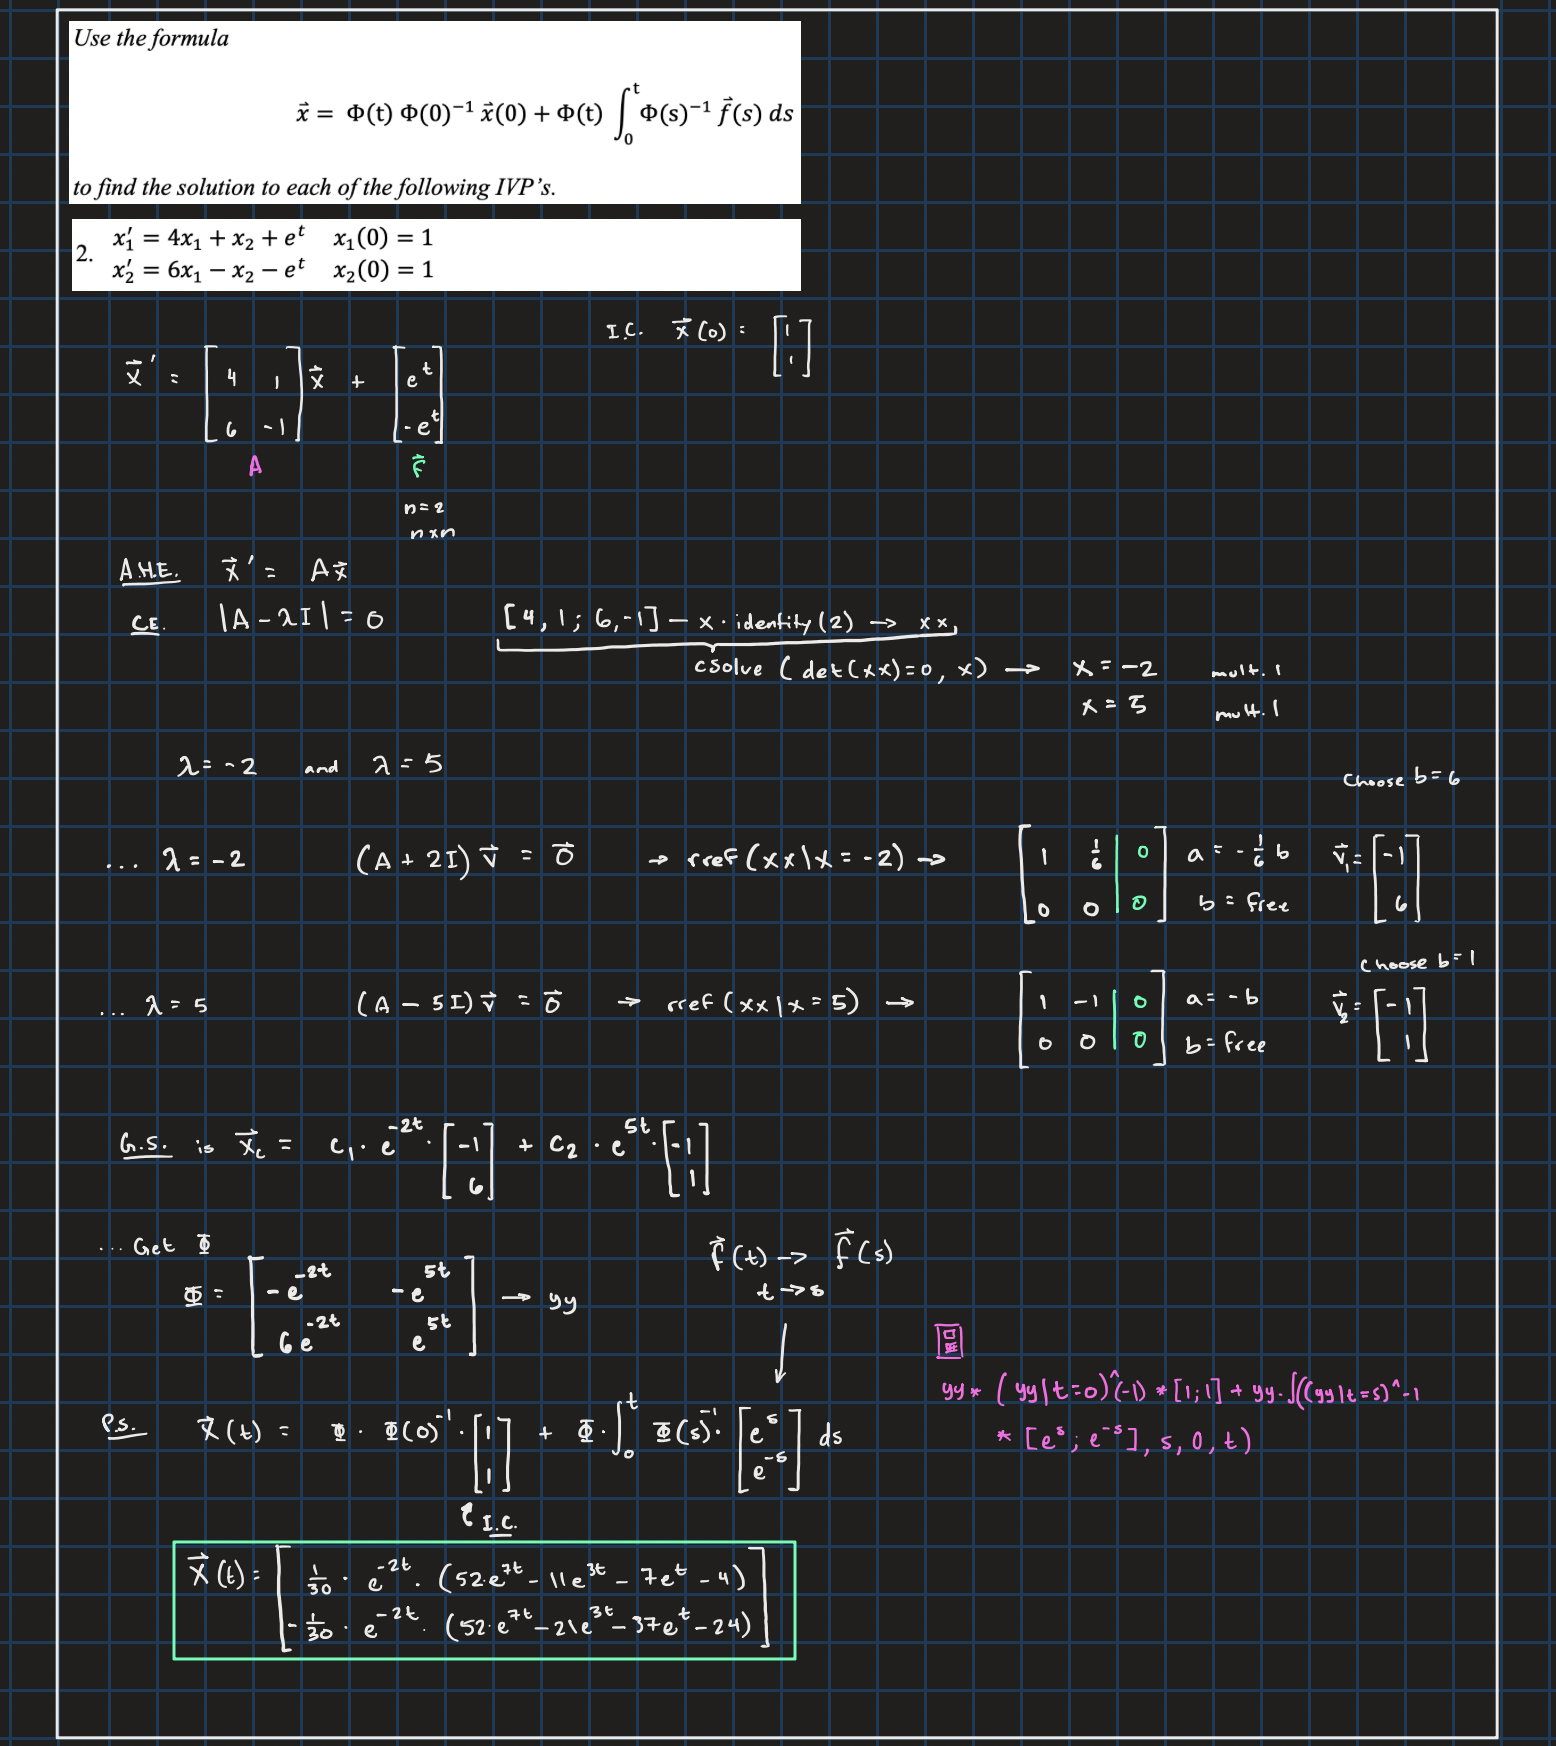 Use the formula
x⃗ = Φ(t) Φ(0)⁻¹ x⃗(0) + Φ(t) ∫₀ᵗ Φ(s)⁻¹ f⃗(s) ds
to find the solution to each of the following IVP's.
2. x₁′ = 4x₁ + x₂ + eᵗ x₁(0) = 1
x₂′ = 6x₁ − x₂ − eᵗ x₂(0) = 1
I.C. x⃗(0) = [1; 1]
x⃗′ = [4 1; 6 -1] x⃗ + [eᵗ; -eᵗ]
A f⃗
n=2
n×n
A.H.E. x⃗′ = Ax⃗
C.E. |A - λI| = 0 [4, 1; 6, -1] - x · identity(2) → xx
cSolve (det(xx)=0, x) → x = -2 mult. 1
x = 5 mult. 1
λ = -2 and λ = 5
Choose b=6
... λ = -2 (A + 2I) v⃗ = 0⃗ → rref(xx|x = -2) → [1 1/6 | 0; 0 0 | 0] a = -1/6 b b = free v⃗₁ = [-1; 6]
Choose b=1
... λ = 5 (A - 5I) v⃗ = 0⃗ → rref(xx|x = 5) → [1 -1 | 0; 0 0 | 0] a = -b b = free v⃗₂ = [-1; 1]
G.S. is x⃗c = C₁ · e^-2t · [-1; 6] + C₂ · e^5t · [-1; 1]
... Get Φ
f⃗(t) → f⃗(s)
t → s
Φ = [-e^-2t -e^5t; 6e^-2t e^5t] → yy
yy * (yy|t=0)^(-1) * [1;1] + yy · ∫((yy|t=s)^-1
* [e^s; e^-s], s, 0, t)
P.S. x⃗(t) = Φ · Φ(0)⁻¹ · [1; 1] + Φ · ∫₀ᵗ Φ(s)⁻¹ · [e^s; e^-s] ds
I.C.
x⃗(t) = [1/30 · e^-2t · (52e^7t - 11e^3t - 7e^t - 4)
-1/30 · e^-2t · (52·e^7t - 21e^3t - 37e^t - 24)]